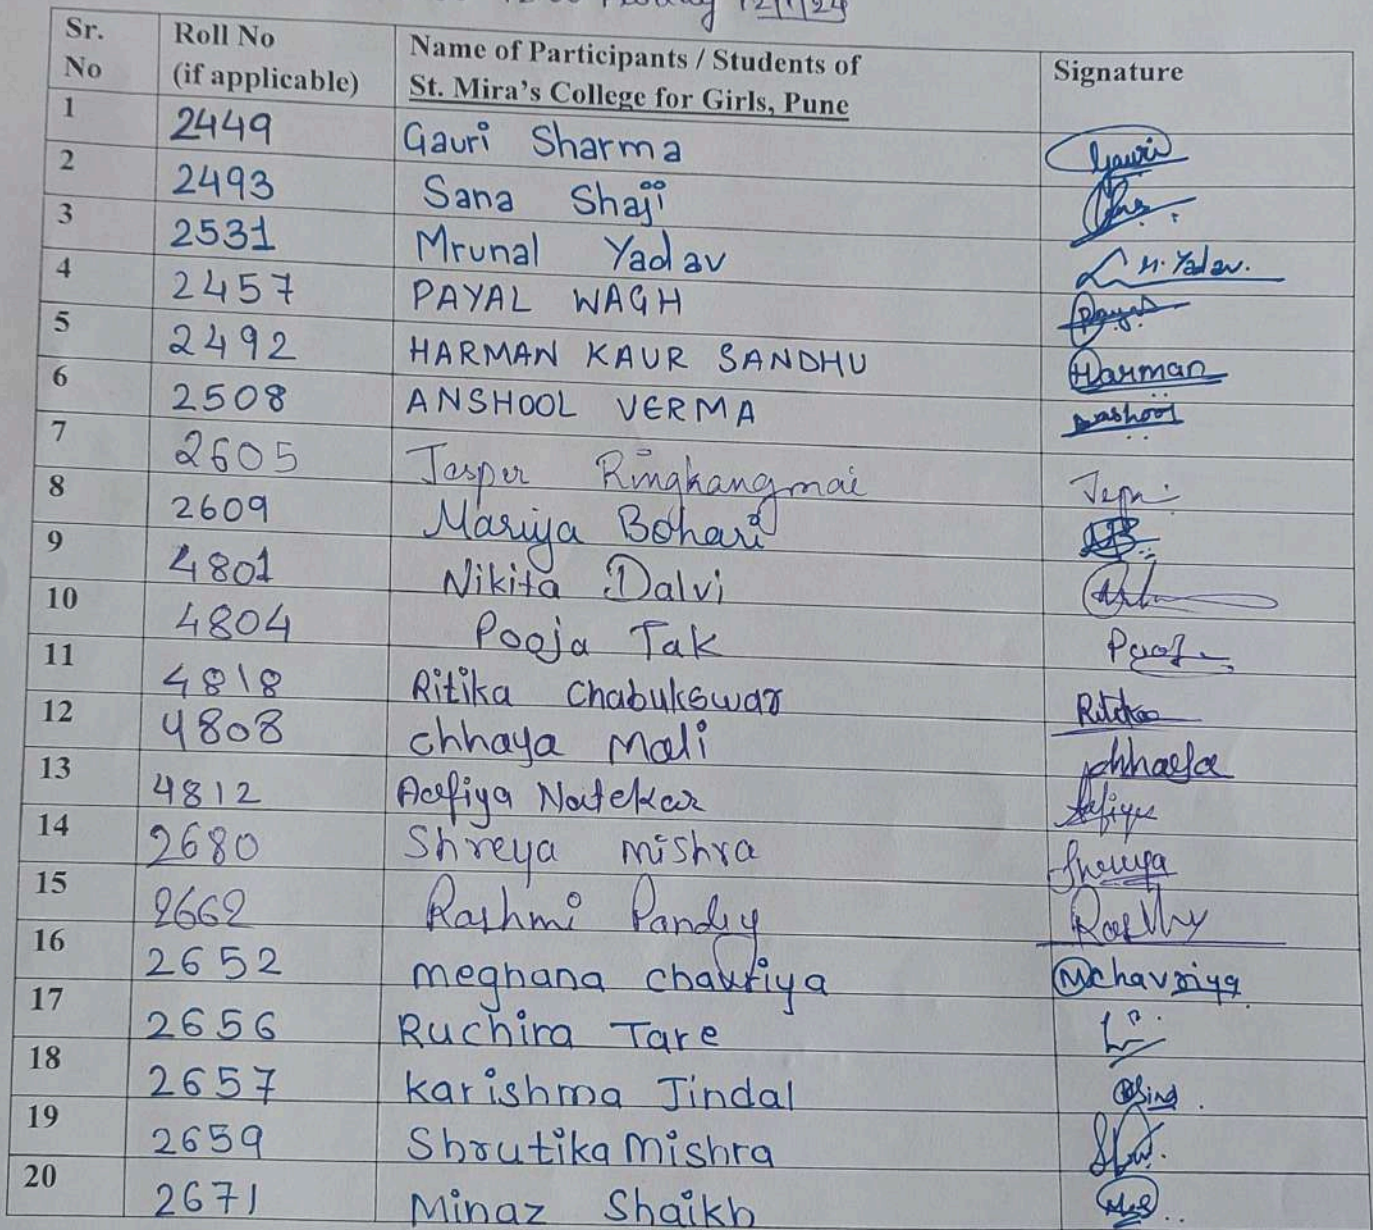 12/1/24
Sr. No Roll No (if applicable) Name of Participants / Students of St. Mira's College for Girls, Pune Signature
1 2449 Gauri Sharma Gauri
2 2493 Sana Shaji
3 2531 Mrunal Yadav M. Yadav.
4 2457 PAYAL WAGH Payal
5 2492 HARMAN KAUR SANDHU Harman
6 2508 ANSHOOL VERMA Anshool
7 2605 Jasper Ringkangmai
8 2609 Mariya Bohari
9 4801 Nikita Dalvi
10 4804 Pooja Tak Pooja
11 4818 Ritika Chabukswar Ritika
12 4808 chhaya Mali chhaya
13 4812 Aafiya Natekar Aafiya
14 2680 Shreya mishra Shreya
15 2662 Rashmi Pandey
16 2652 meghana chavriya Mchavriya
17 2656 Ruchira Tare
18 2657 karishma Jindal
19 2659 Shrutika mishra
20 2671 Minaz Shaikh